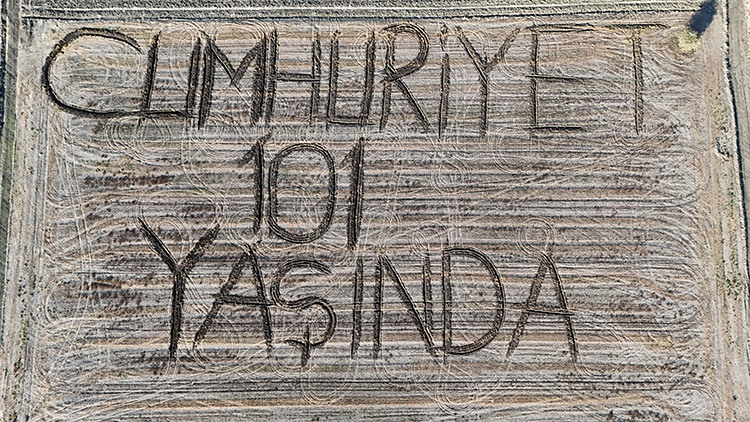 CUMHURİYET
101
YAŞINDA